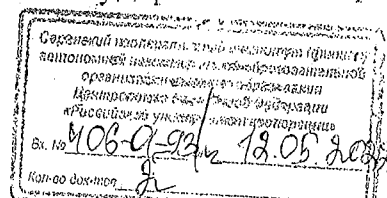 Саранский кооперативный институт (филиал)
автономной некоммерческой образовательной
организации высшего образования
Центросоюза Российской Федерации
«Российский университет кооперации»
Вх. № 406-9-93/ 12.05.
Кол-во док-тов 2